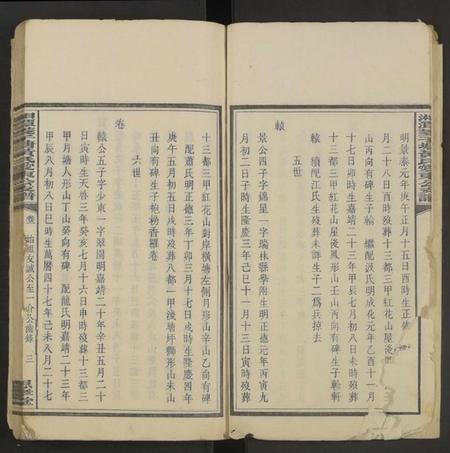 明景泰元年庚午正月十五日酉時生正德
月二十八日酉時歿葬十三都三甲紅花山屋後
山丙向有碑生子翰 繼配沈氏明成化元年乙酉十一月
十三都三甲紅花山屋後鳳形山壬山丙向有碑生子翰軒
轅 續配江氏生歿葬未詳生子一爲兵掠去
五世
轅
景公四子字錦星一字瑞林縣學附生明正德元年丙寅九
月初二日子時生隆慶三年己巳十一月十三日寅時歿葬
十三都三甲紅花山對岸橫塘左側月形山辛山乙向有碑
配蕭氏明正德三年丁卯三月初十日戌時生隆慶四年
庚午五月初五日戌時歿葬八都一甲淺塘坪獅形山未山
丑向有碑生子袍榜香羅卷
六世
卷
轅公五子字少東一字翠園明嘉靖二十年辛丑五月二十
日寅時生天啓三年癸亥七月十六日申時歿葬十三都三
甲月塘人形山丁山癸向有碑 配龍氏明嘉靖二十三年
甲辰八月初八日巳時生萬曆四十七年己未八月二十七
卷 始遷友誠公至一介公齒錄 三